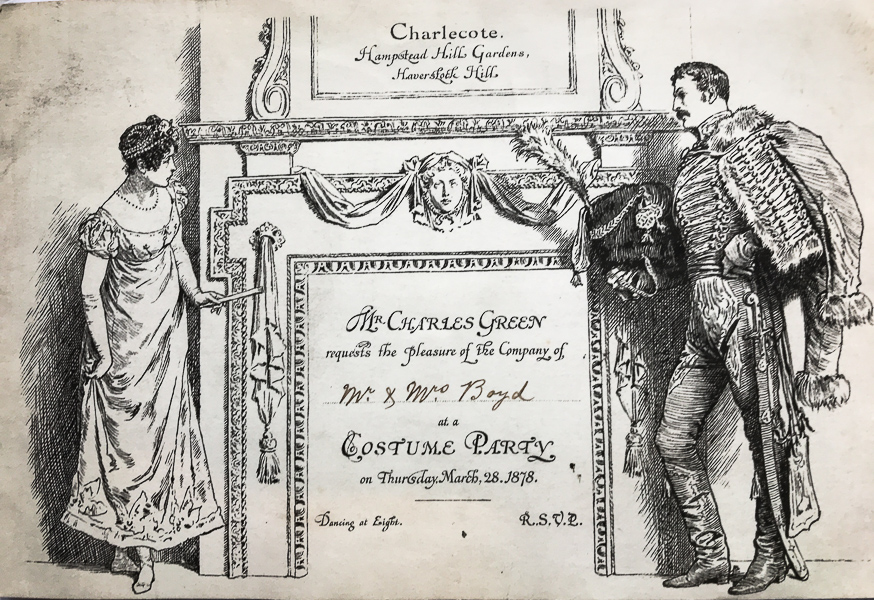 Charlecote.
Hampstead Hill Gardens,
Haverstock Hill.
Mr. CHARLES GREEN
requests the pleasure of the Company of,
Mr. & Mrs Boyd
at a
COSTUME PARTY
on Thursday, March, 28. 1878.
Dancing at Eight.
R.S.V.P.